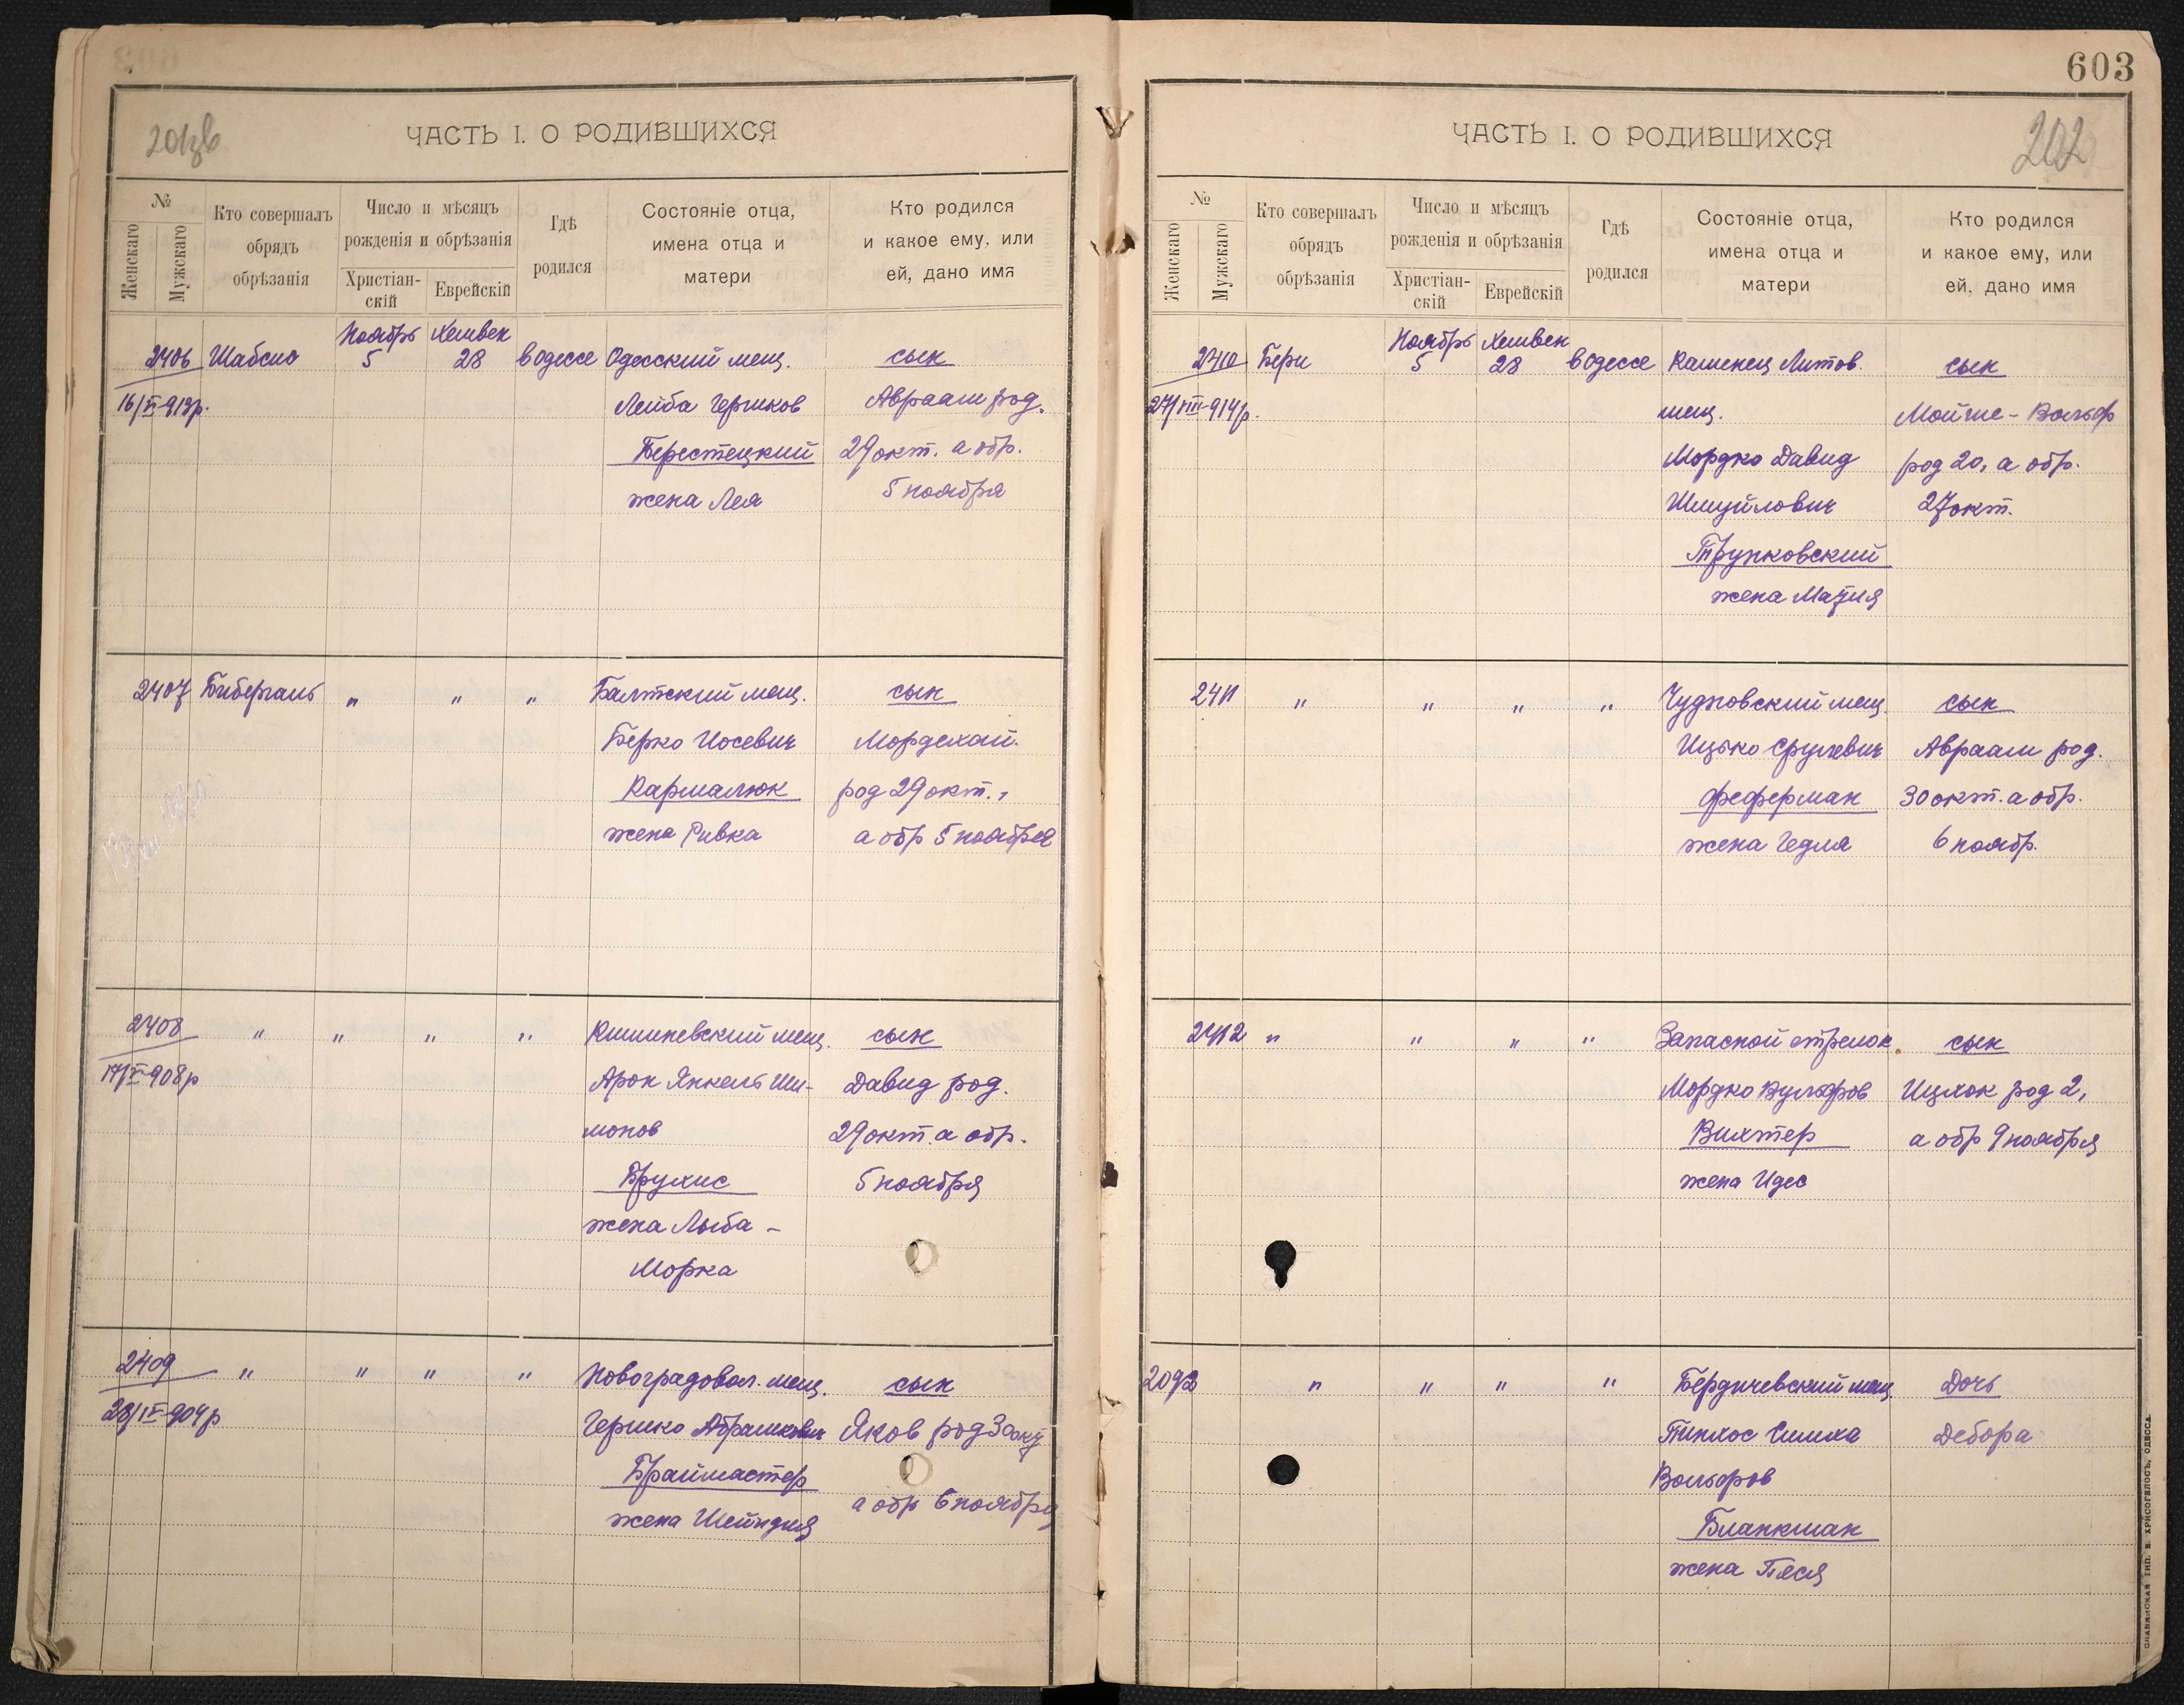 ЧАСТЬ I. О РОДИВШИХСЯ
№
Женскаго
Мужскаго
Кто совершалъ
обрядъ
обрѣзанія
Число и мѣсяцъ
рожденія и обрѣзанія
Христіан-
скій
Еврейскій
Гдѣ
родился
Состояніе отца,
имена отца и
матери
Кто родился
и какое ему, или
ей, дано имя
2406 Шабсис Ноябрь 5 Хешвен 28 в Одессе Одесский мещ. сын
Лейба Гершков Авраам род.
Берестецкий 29 окт. а обр.
жена Лея 5 ноября
2407 Бибергаль " " " Балтский мещ. сын
Берко Иосевич Мордехай.
Кармалюк род 29 окт.,
жена Ривка а обр 5 ноября
2408 " " " " Кишиневский мещ. сын
17/X-908р Арон Янкель Ши- Давид род.
монов 29 окт. а обр.
Брухис 5 ноября
жена Лыба -
Морка
2409 " " " " Новоградовол. мещ. сын
28/IV-904р Гершко Абрамкович Яков род 30 ок
Браймастер
а обр 6 ноября
жена Шейндля
603
202
ЧАСТЬ I. О РОДИВШИХСЯ
№
Женскаго
Мужскаго
Кто совершалъ
обрядъ
обрѣзанія
Число и мѣсяцъ
рожденія и обрѣзанія
Христіан-
скій
Еврейскій
Гдѣ
родился
Состояніе отца,
имена отца и
матери
Кто родился
и какое ему, или
ей, дано имя
2410 Бери Ноябрь 5 Хешвен 28 в Одессе Каменец Литов. сын
27/VIII-914р. мещ. Мойше-Вольф
Мордко Давид род 20, а обр.
Шмуйлович 27 окт.
Трупковский
жена Мазия
2411 " " " " Чудновский мещ. сын
Ицько Срулевич Авраам род.
Феферман 30 окт. а обр.
жена Гедля 6 ноябр.
2412 " " " " Запасной стрелок. сын
Мордко Вульфов Ицхок род 2,
Вихтер а обр 9 ноября
жена Идес
2092 " " " " Бердичевский мещ Дочь
Пинхос Симха Дебора
Вольфов
Бланкман
жена Песя
СЛАВЯНСКАЯ ТИП. Е. ХРИСОГЕЛОСЪ, ОДЕССА.